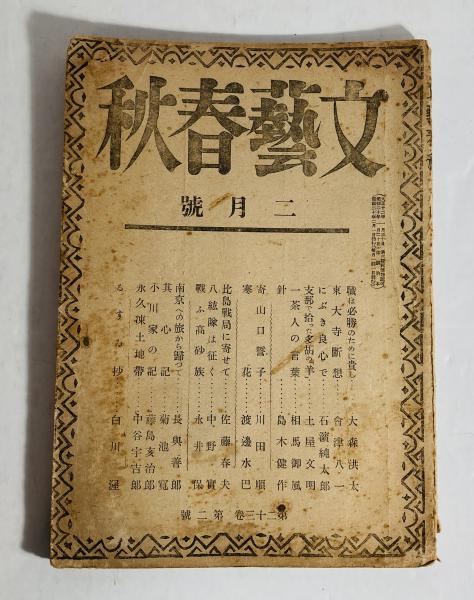 文藝春秋
二月號
職は必勝のために貴し 大森洪太
東大寺斷想 會津八一
にぶき良心で 石濱純太郎
支那で拾つた老胡の羊 土屋文明
一茶人の言葉 相馬御風
針 島木健作
寄山口誓子 川田順
寒花 渡邊水巴
比島戰局に寄せて 佐藤春夫
八紘隊は征く 中野實
戰ふ高砂族 永井保
南京への旅から歸つて 長與善郎
其心記 菊池寬
小川家の記 藤島亥治郎
永久凍土地帶 中谷宇吉郎
るすゐ抄 白川渥
第二十三卷 第二號